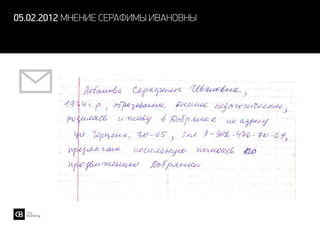 05.02.2012 МНЕНИЕ СЕРАФИМЫ ИВАНОВНЫ
Серафима Ивановна,
1934 г.р., образование высшее педагогическое,
родилась и живу в Добрянке по адресу
ул Герцена, 30-65, тел 8-902-476-70-69,
предлагаю посильную помощь по
продвижению Добрянки
CB